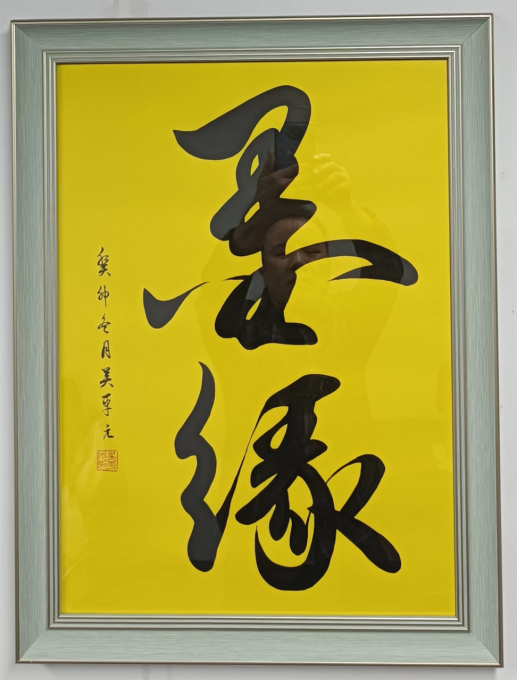 墨缘
癸卯冬月吴元